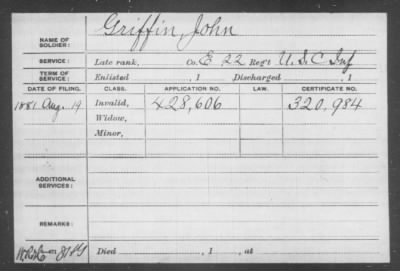 NAME OF SOLDIER: Griffin, John
SERVICE: Late rank, Co. E 22 Reg't U.S.C Inf
TERM OF SERVICE: Enlisted , 1 Discharged , 1
DATE OF FILING. CLASS. APPLICATION NO. LAW. CERTIFICATE NO.
1881 Aug. 19 Invalid, 428,606 320,984
Widow,
Minor,
ADDITIONAL SERVICES:
REMARKS:
Died , 1 , at